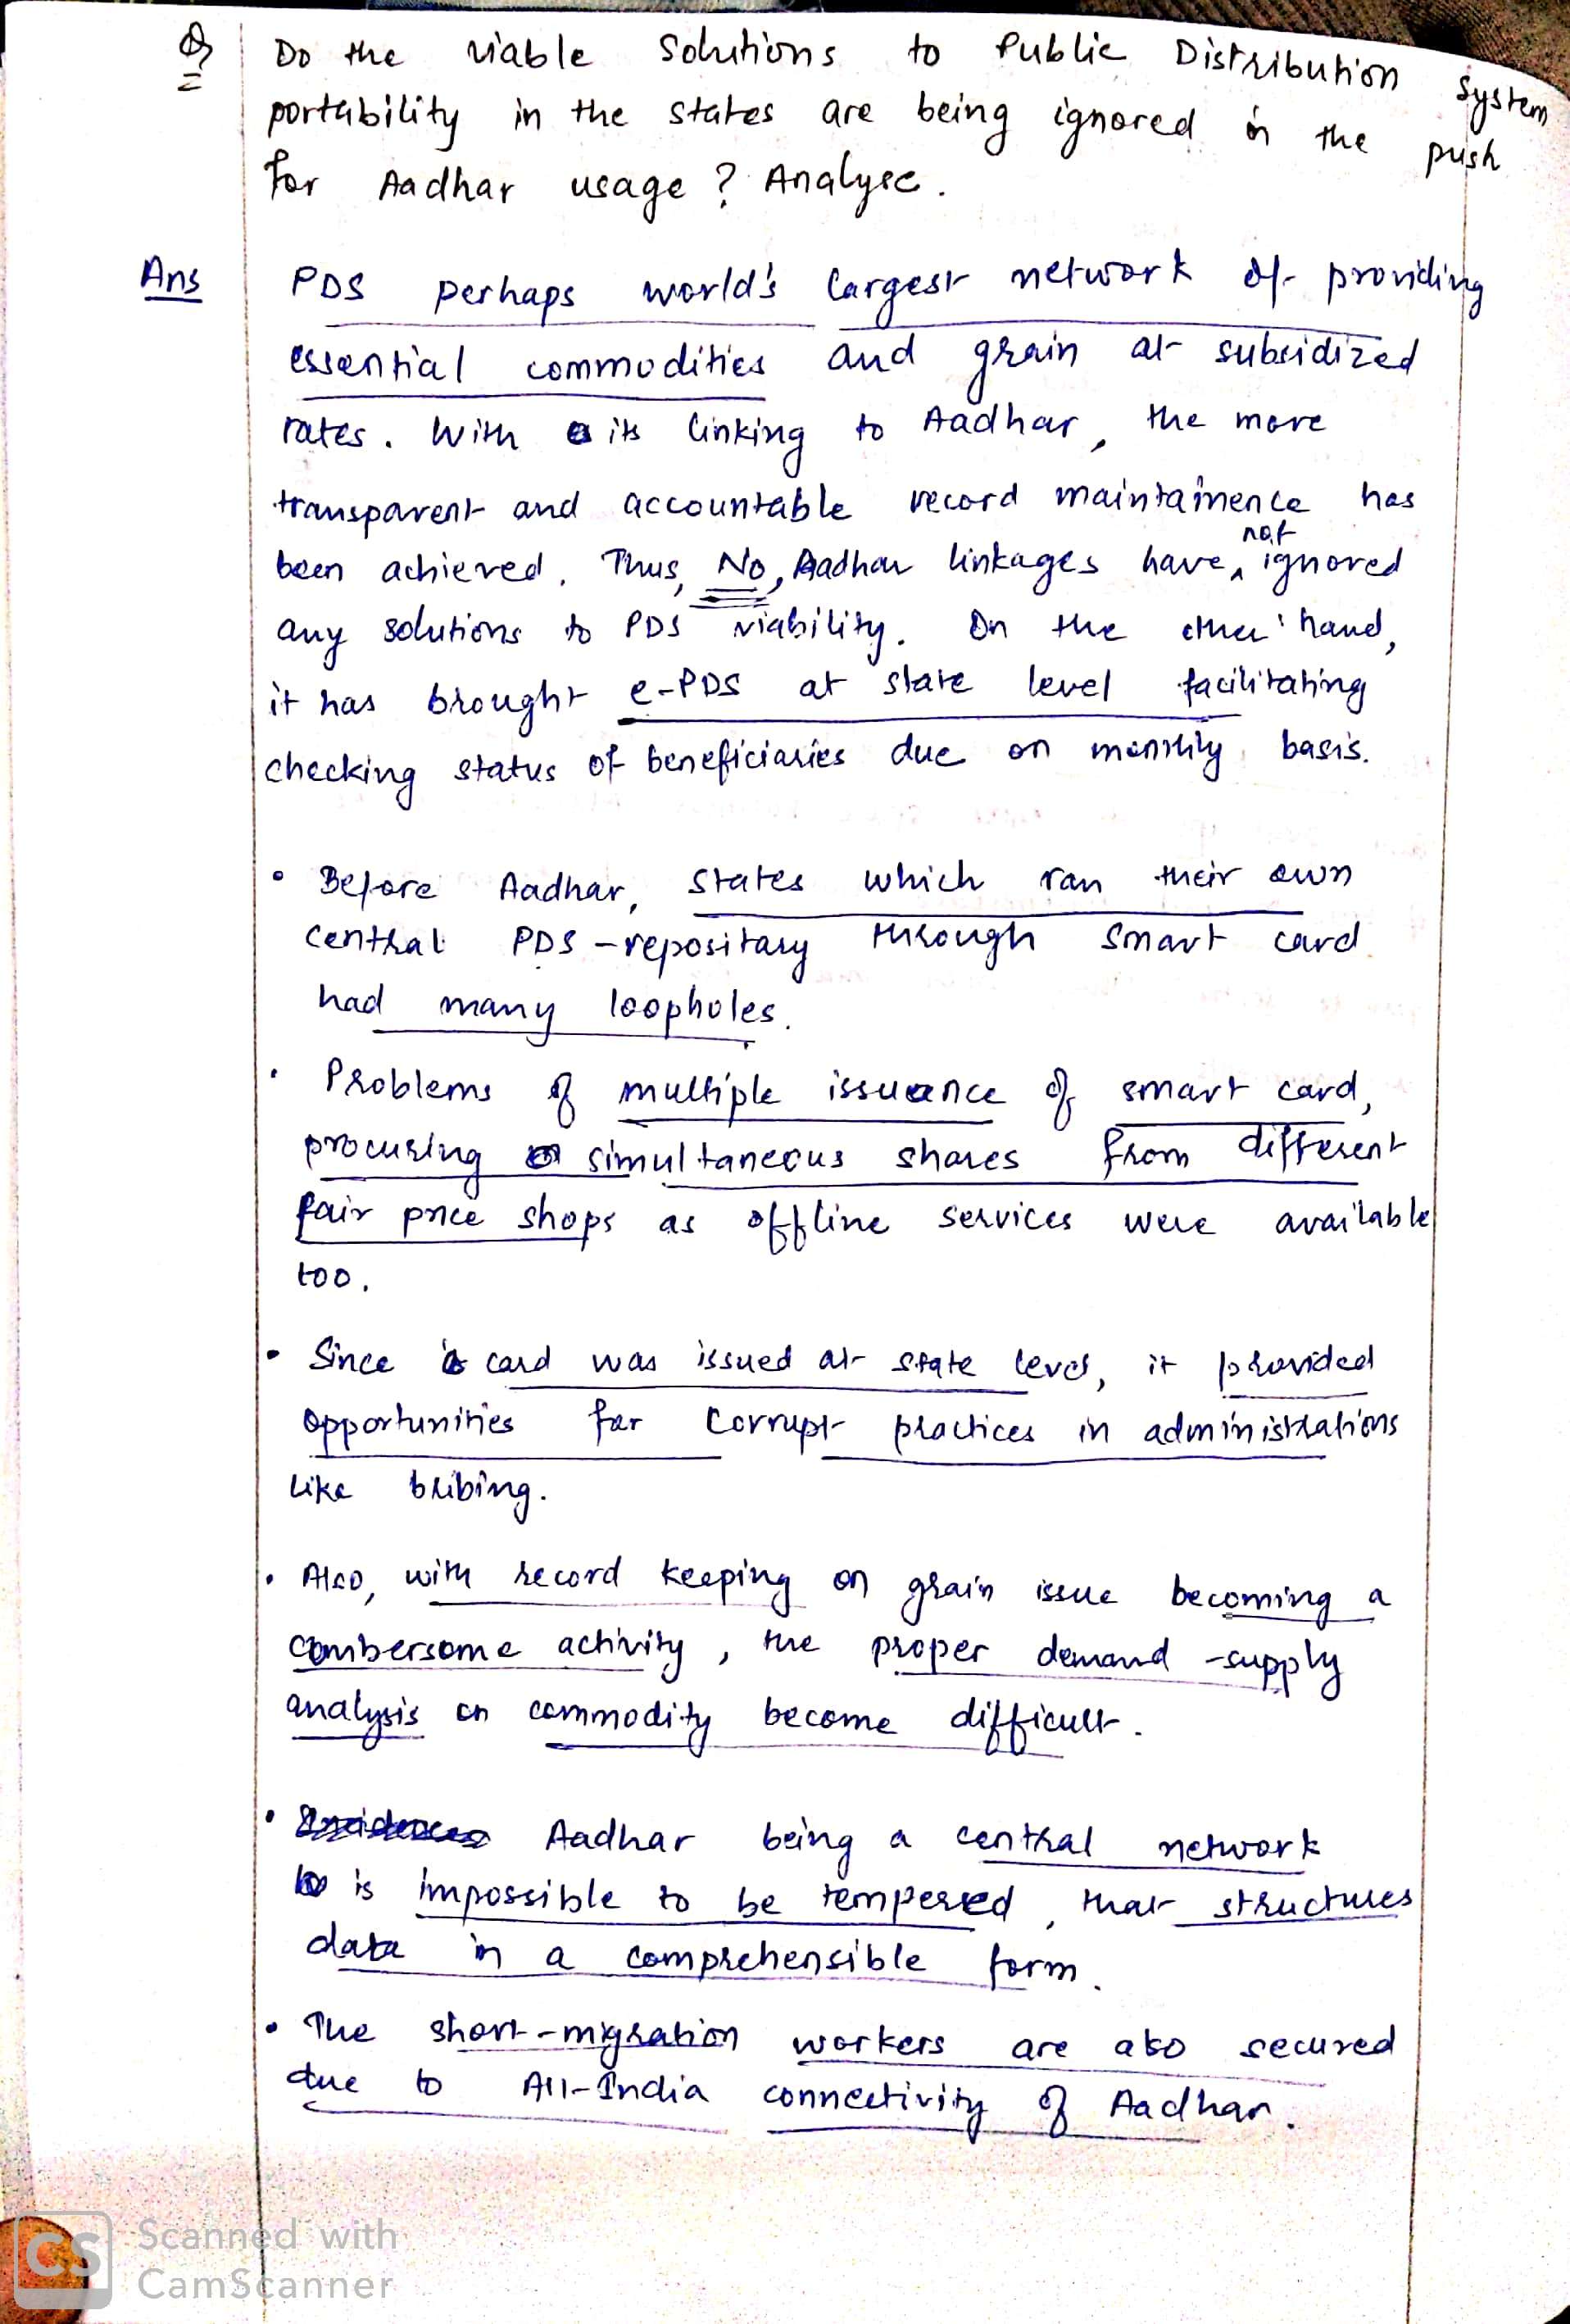 Q Do the viable solutions to Public Distribution System
portability in the states are being ignored in the push
for Aadhar usage ? Analyse.
Ans PDS perhaps world's largest network of providing
essential commodities and grain at subsidized
rates. With its linking to Aadhar, the more
transparent and accountable record maintainence has
been achieved. Thus, No, Aadhar linkages have not ignored
any solutions to PDS viability. On the other hand,
it has brought e-PDS at state level facilitating
checking status of beneficiaries due on monthly basis.
• Before Aadhar, states which ran their own
central PDS - repositary through smart card
had many loopholes.
• Problems of multiple issuance of smart card,
procuring simultaneous shares from different
fair price shops as offline services were available
too.
• Since card was issued at state level, it provided
opportunities for corrupt practices in administrations
like bribing.
• Also, with record keeping on grain issue becoming a
combersome activity, the proper demand -supply
analysis on commodity become difficult.
• Aadhar being a central network
is impossible to be tempered, that structures
data in a comprehensible form.
• The short-migration workers are also secured
due to All-India connectivity of Aadhar.
CS Scanned with
CamScanner